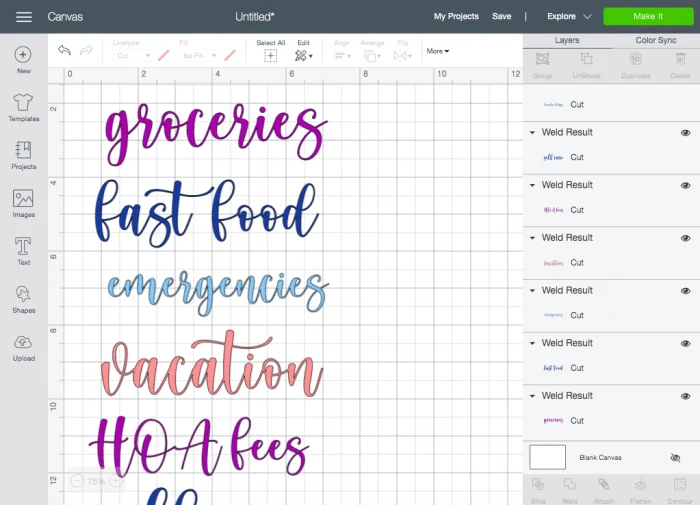 Canvas
Untitled*
My Projects
Save
|
Explore
Make It
New
Templates
Projects
Images
Text
Shapes
Upload
Linetype
Cut
Fill
No Fill
Select All
Edit
Align
Arrange
Flip
More
0
2
4
6
8
10
12
2
4
6
8
10
12
groceries
fast food
emergencies
vacation
HOA fees
75%
Layers
Color Sync
Group
UnGroup
Duplicate
Delete
Cut
Weld Result
self care
Cut
Weld Result
HOA fees
Cut
Weld Result
vacation
Cut
Weld Result
emergencies
Cut
Weld Result
fast food
Cut
Weld Result
groceries
Cut
Blank Canvas
Slice
Weld
Attach
Flatten
Contour